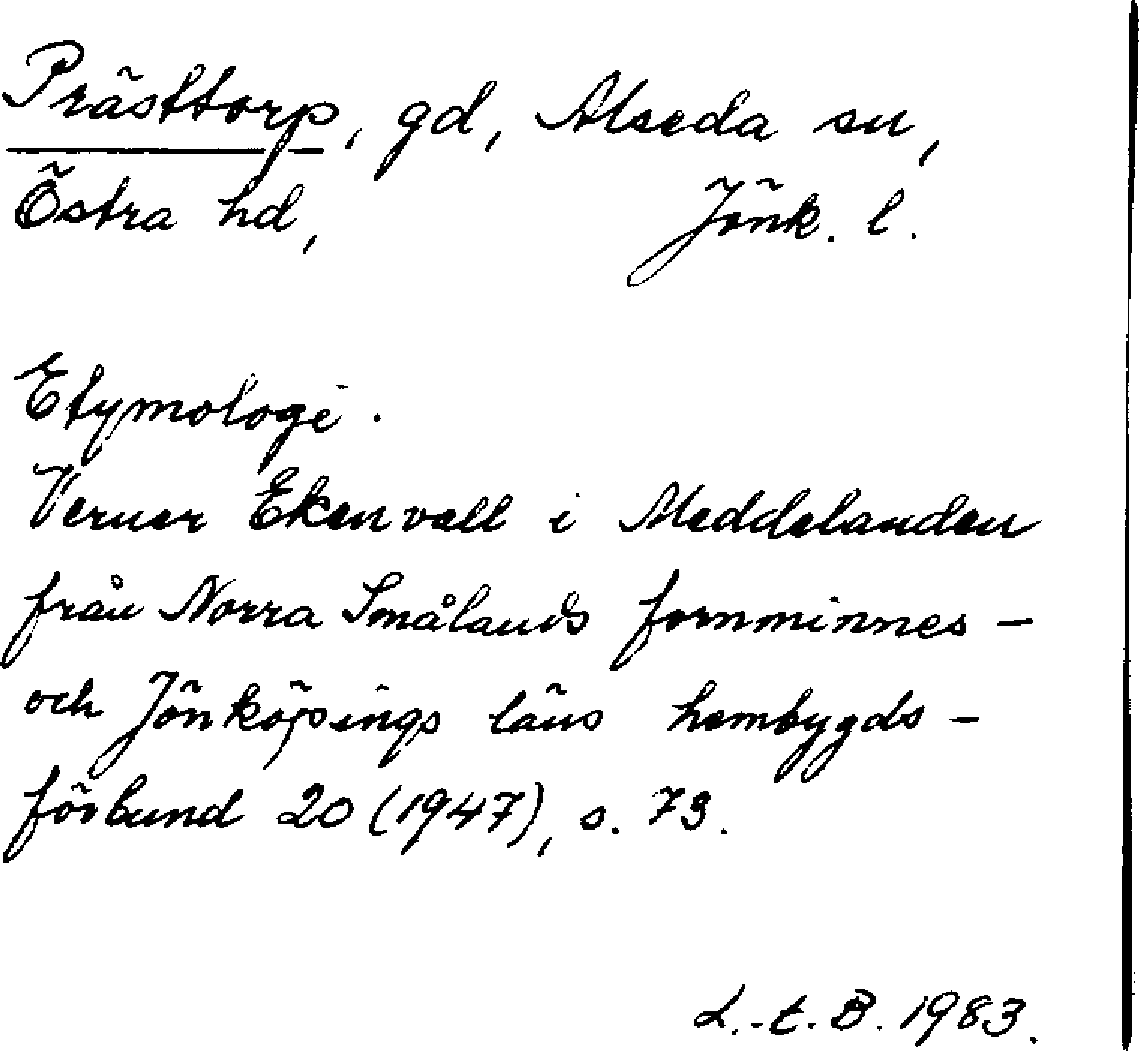 Prästtorp, gd, Alseda sn,
Östra hd, Jönk. l.
Etymologi.
Verner Ekenvall i Meddelanden
från Norra Smålands fornminnes-
och Jönköpings läns hembygds-
förbund 20 (1947), s. 73.
L.-t. B. 1983.